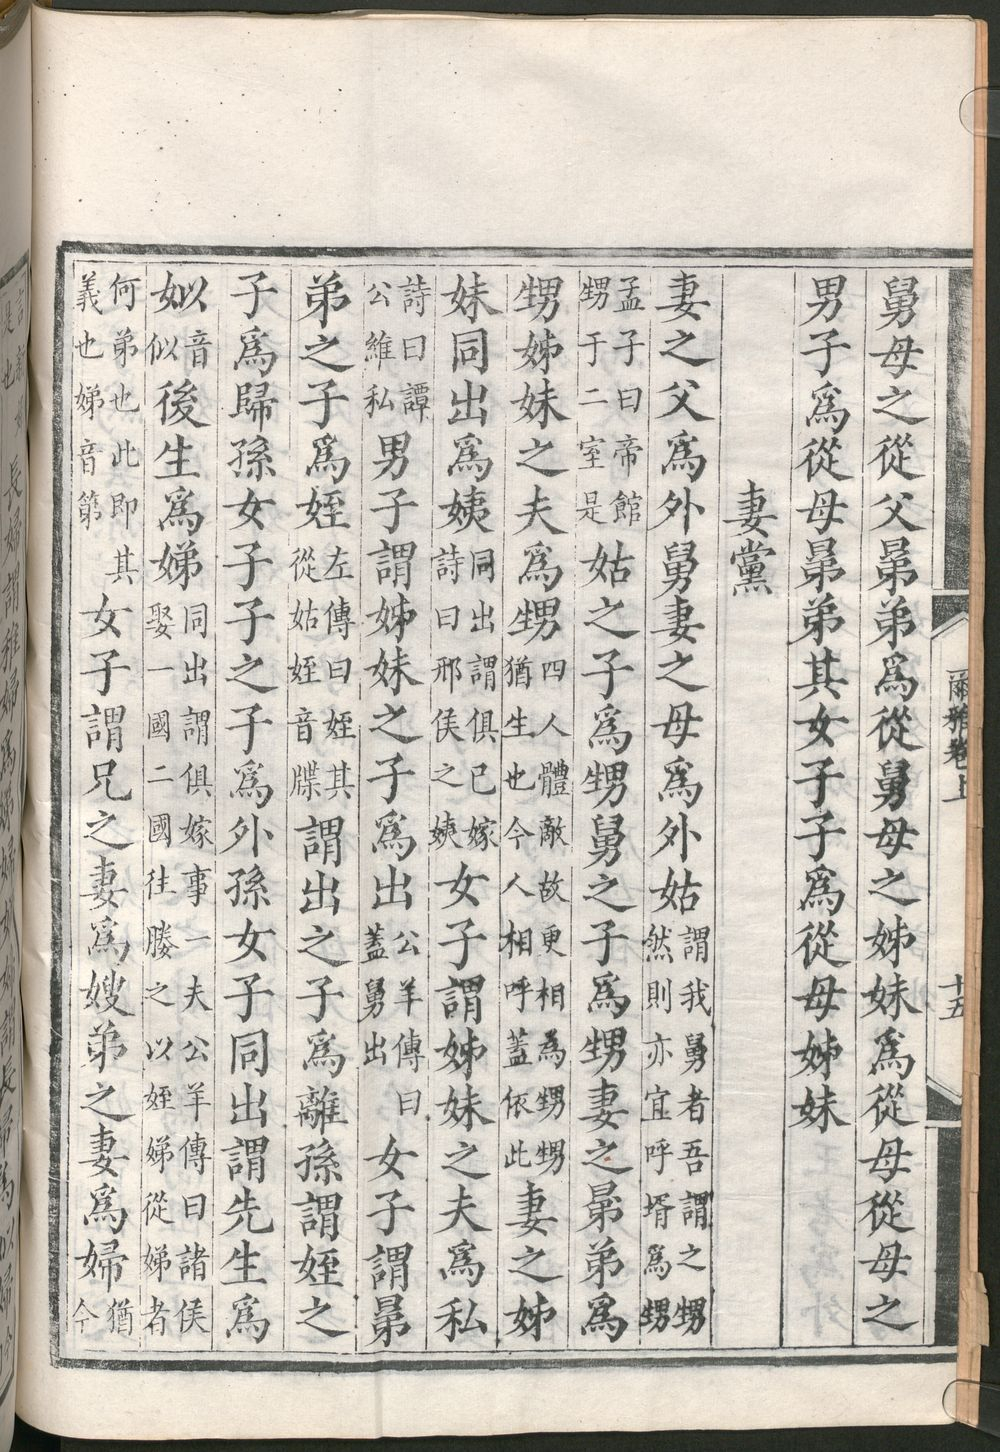 舅母之從父晜弟爲從舅母之姊妹爲從母從母之
男子爲從母晜弟其女子子爲從母姊妹
妻黨
妻之父爲外舅妻之母爲外姑謂我舅者吾謂之甥然則亦宜呼壻爲甥
孟子曰帝館甥于二室是姑之子爲甥舅之子爲甥妻之晜弟爲
甥姊妹之夫爲甥四人體敵故更相為甥甥猶生也今人相呼蓋依此妻之姊
妹同出爲姨同出謂俱已嫁詩曰邢侯之姨女子謂姊妹之夫爲私
詩曰譚公維私男子謂姊妹之子爲出公羊傳曰蓋舅出女子謂晜
弟之子爲姪左傳曰姪其從姑姪音牒謂出之子爲離孫謂姪之
子爲歸孫女子子之子爲外孫女子同出謂先生爲
姒音似後生爲娣同出謂俱嫁事一夫公羊傳曰諸侯娶一國二國往媵之以姪娣從娣者
何弟也此即其義也娣音第女子謂兄之妻爲嫂弟之妻爲婦猶今
爾雅卷上
十五